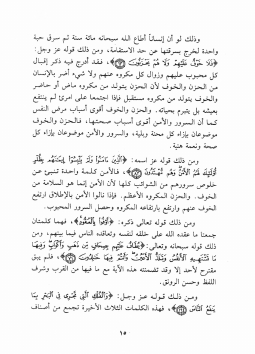 وذلك لو أن إنساناً أطاع الله سبحانه مائة سنة ثم سرق حبة
واحدة لخرج بسرقتها عن حد الاستقامة، ومن ذلك قوله عز وجل:
﴿فَلَا خَوْفٌ عَلَيْهِمْ وَلَا هُمْ يَحْزَنُونَ﴾ فقد أدرج فيه ذكر إقبال
كل محبوب عليهم وزوال كل مكروه عنهم ولا شيء أضر بالإنسان
من الحزن والخوف لأن الحزن يتولد من مكروه ماض أو حاضر
والخوف يتولد من مكروه مستقبل فإذا اجتمعا على امرئ لم ينتفع
بعيشه بل يتبرم بحياته. والحزن والخوف أقوى أسباب مرض النفس
كما أن السرور والأمن أقوى أسباب صحتها، فالحزن والخوف
موضوعان بإزاء كل محنة وبلية، والسرور والأمن موضوعان بإزاء كل
صحة ونعمة هنية.
ومن ذلك قوله عز اسمه: ﴿الَّذِينَ آمَنُوا وَلَمْ يَلْبِسُوا إِيمَانَهُم بِظُلْمٍ
أُولَٰئِكَ لَهُمُ الْأَمْنُ وَهُم مُّهْتَدُونَ﴾ فالأمن كلمة واحدة تنبئ عن
خلوص سرورهم من الشوائب كلها لأن الأمن إنما هو السلامة من
الخوف، والحزن المكروه الأعظم. فإذا نالوا الأمن بالإطلاق ارتفع
الخوف عنهم وارتفع بارتفاعه المكروه وحصل السرور المحبوب.
ومن ذلك قوله تعالى ذكره: ﴿أَوْفُوا بِالْعُقُودِ﴾ فهما كلمتان
جمعتا ما عقده الله على خلقه لنفسه وتعاقده الناس فيما بينهم، ومن
ذلك قوله سبحانه وتعالى: ﴿يُطَافُ عَلَيْهِم بِصِحَافٍ مِّن ذَهَبٍ وَأَكْوَابٍ وَفِيهَا
مَا تَشْتَهِيهِ الْأَنفُسُ وَتَلَذُّ الْأَعْيُنُ وَأَنتُمْ فِيهَا خَالِدُونَ﴾ فلم يبق
مقترح لأحد إلا وقد تضمنته هذه الآية مع ما فيها من القرب وشرف
اللفظ وحسن الرونق.
ومن ذلك قوله عز وجل: ﴿وَالْفُلْكِ الَّتِي تَجْرِي فِي الْبَحْرِ بِمَا
يَنفَعُ النَّاسَ﴾ فهذه الكلمات الثلاث الأخيرة تجمع من أصناف
١٥